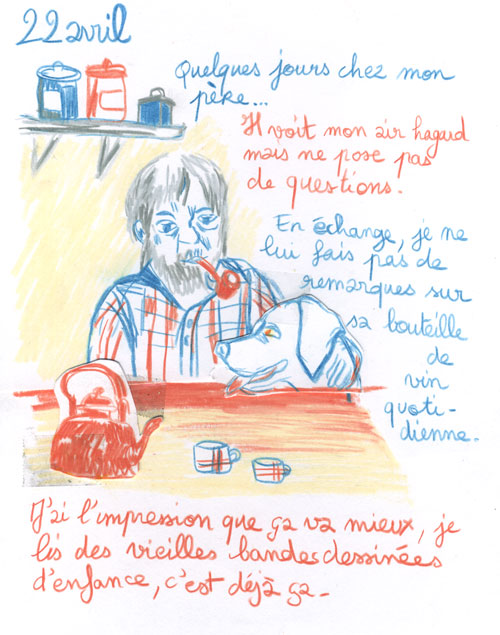 22 avril
Quelques jours chez mon
père...
Il voit mon air hagard
mais ne pose pas
de questions.
En échange, je ne
lui fais pas de
remarques sur
sa bouteille
de
vin
quoti-
dienne.
J'ai l'impression que ça va mieux, je
lis des vieilles bandes dessinées
d'enfance, c'est déjà ça.